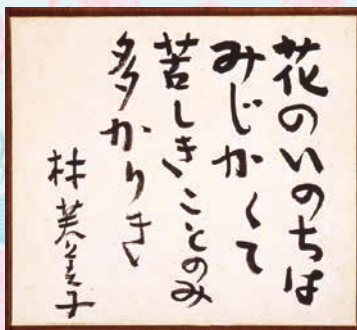 花のいのちは
みじかくて
苦しきことのみ
多かりき
林芙美子